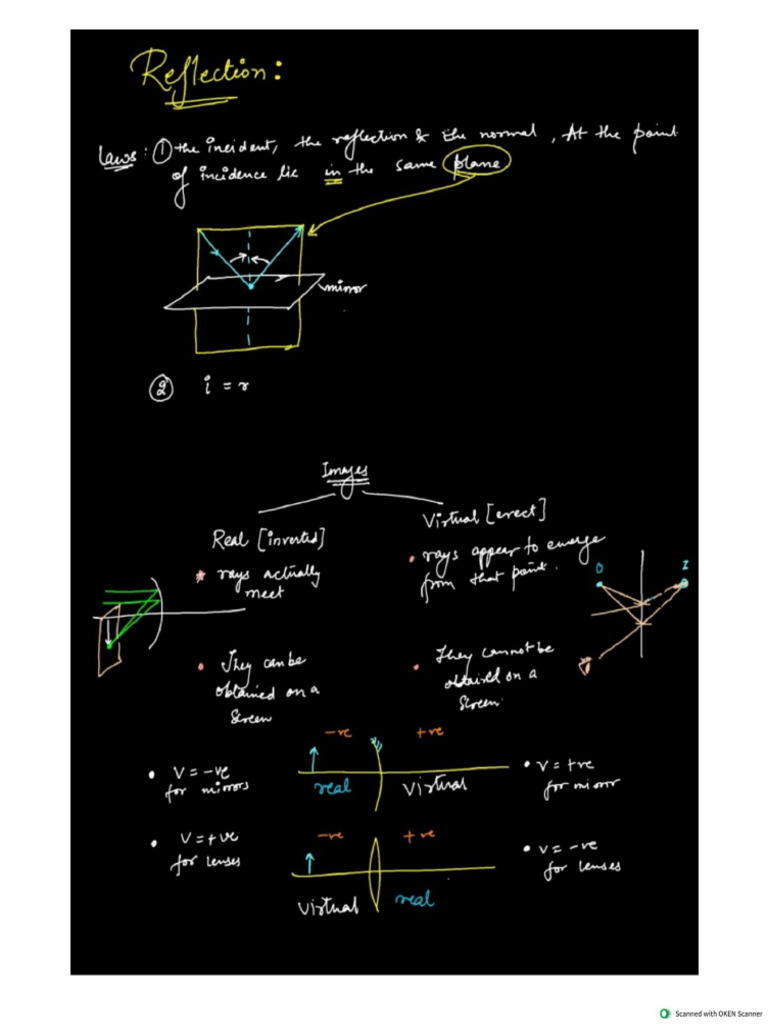 Reflection:
Laws: ① the incident, the reflection & the normal, At the point
of incidence lie in the same plane
mirror
② i = r
Images
Real [inverted]
* rays actually
meet
• They can be
obtained on a
screen
• V = -ve
for mirrors
• V = +ve
for lenses
Virtual [erect]
• rays appear to emerge
from that point.
O
I
• They cannot be
obtained on a
screen.
-ve +ve
real virtual
• v = +ve
for mirror
-ve +ve
virtual real
• v = -ve
for lenses
Scanned with OKEN Scanner